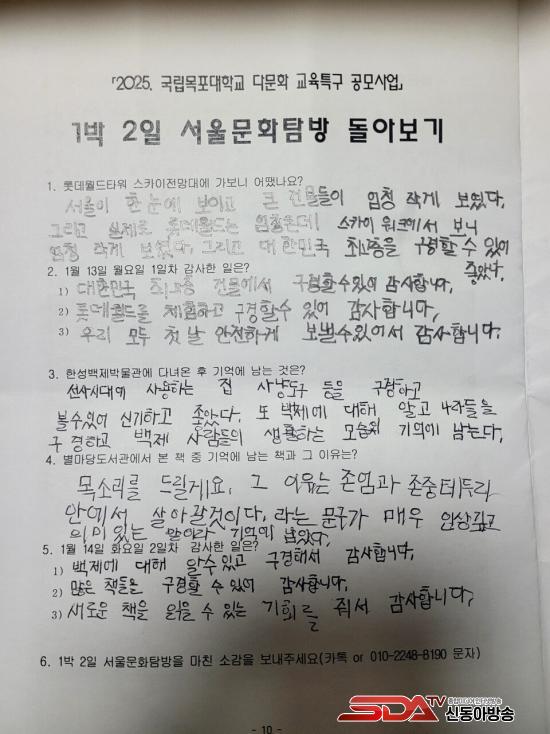 「2025. 국립목포대학교 다문화 교육특구 공모사업」
1박 2일 서울문화탐방 돌아보기
1. 롯데월드타워 스카이전망대에 가보니 어땠나요?
서울이 한눈에 보이고 큰 건물들이 엄청 작게 보였다,
그리고 실제로 롯데월드는 엄청큰데 스카이 워크에서 보니
엄청 작게 보였다, 그리고 대한민국 최고층을 구경할수 있어
좋았다,
2. 1월 13일 월요일 1일차 감사한 일은?
1) 대한민국 최고층 건물에서 구경할수있어 감사합니다,
2) 롯데월드를 체험하고 구경할수 있어 감사합니다,
3) 우리 모두 첫날 안전하게 보낼수있어서 감사합니다.
3. 한성백제박물관에 다녀온 후 기억에 남는 것은?
선사시대에 사용하는 집 사냥도구 등을 구경하고
볼수있어 신기하고 좋았다. 또 백제에 대해 알고
구경하고 백제 사람들의 생활하는 모습이 기억에 남는다,
4. 별마당도서관에서 본 책 중 기억에 남는 책과 그 이유는?
목소리를 드릴게요, 그 이유는 존엄과 존중테두리
안에서 살아갈것이다, 라는 문구가 매우 인상깊고
의미있는 말이라 기억에 남았다,
5. 1월 14일 화요일 2일차 감사한 일은?
1) 백제에 대해 알수있고 구경해서 감사합니다,
2) 많은 책들을 구경할 수 있어 감사합니다,
3) 새로운 책을 읽을 수 있는 기회를 줘서 감사합니다,
6. 1박 2일 서울문화탐방을 마친 소감을 보내주세요(카톡 or 010-2248-8190 문자)
- 10 -
SDATV
신동아방송